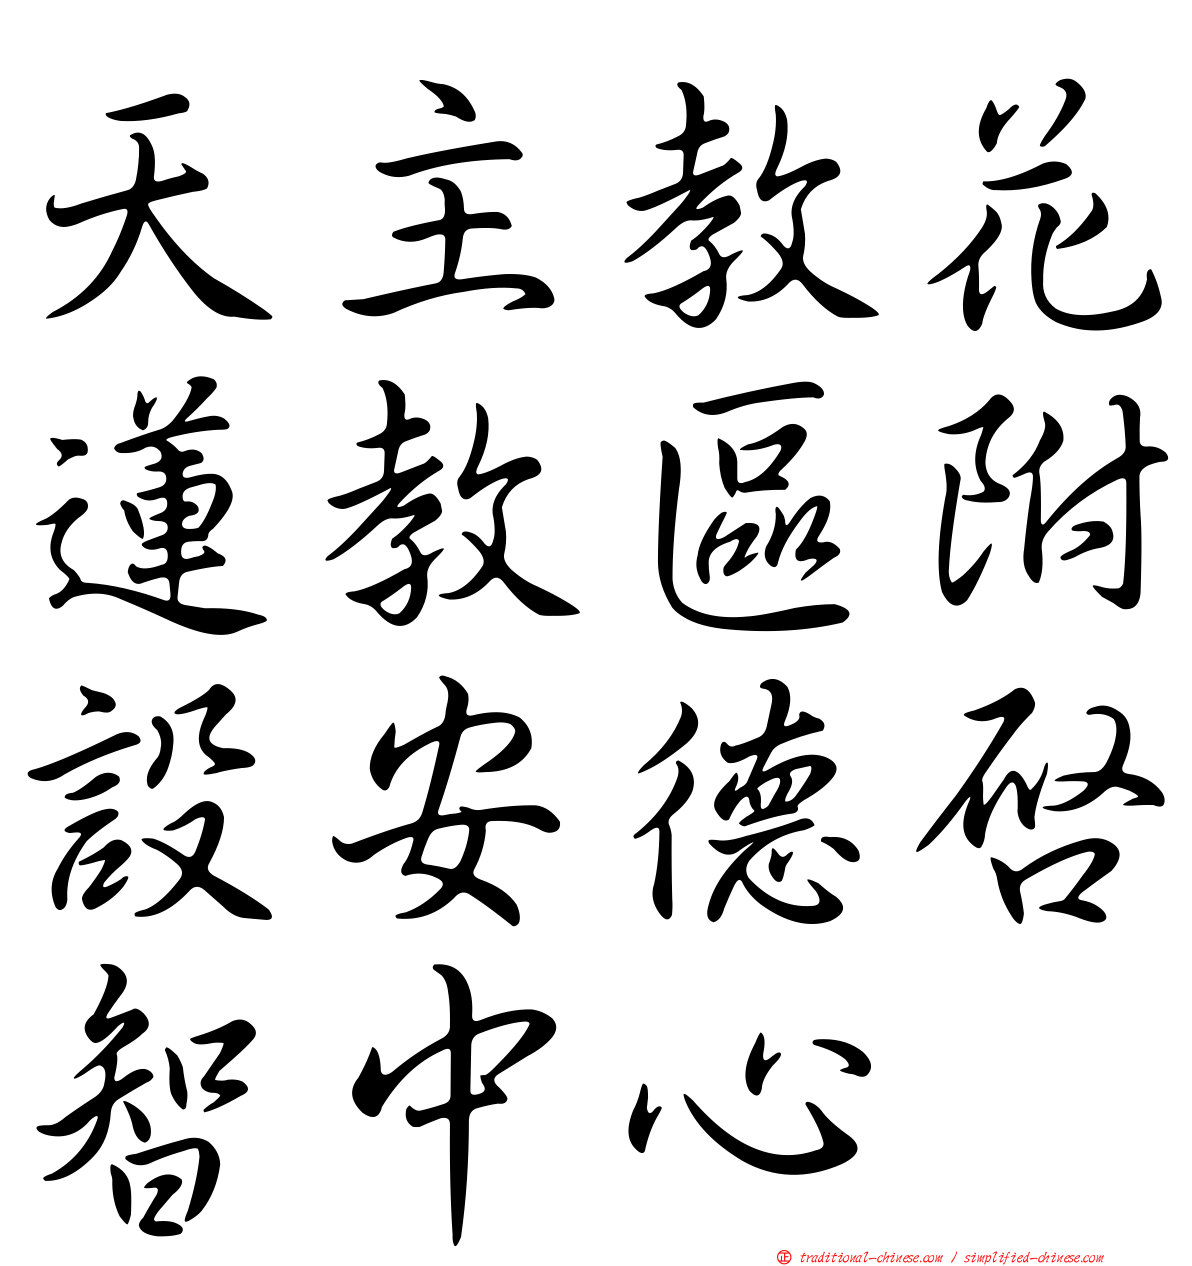 天主教花
蓮教區附
設安德啓
智中心
正 traditional-chinese.com / simplified-chinese.com